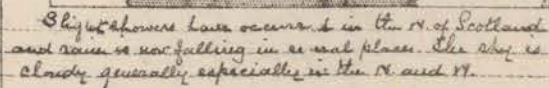 Slight showers have occurred in the N. of Scotland
and rain is now falling in several places. The sky is
cloudy generally especially in the N. and W.